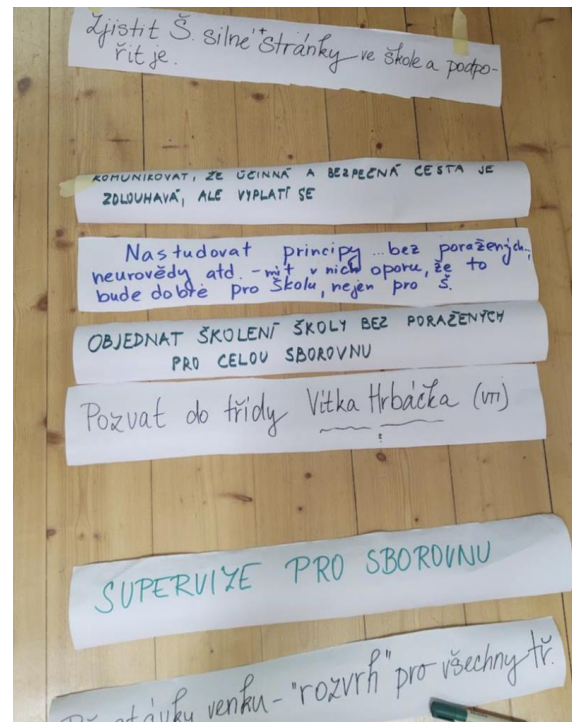 Zjistit Š. silné + stránky ve škole a podpo-
řit je.
KOMUNIKOVAT, ŽE ÚČINNÁ A BEZPEČNÁ CESTA JE
ZDLOUHAVÁ, ALE VYPLATÍ SE
Nastudovat principy ... bez poražených,
neurovědy atd. - mít v nich oporu, že to
bude dobré pro školu, nejen pro Š.
OBJEDNAT ŠKOLENÍ ŠKOLY BEZ PORAŽENÝCH
PRO CELOU SBOROVNU
Pozvat do třídy Vítka Hrbáčka (VTI)
!
SUPERVIZE PRO SBOROVNU
venku - "rozvrh" pro všechny tř.